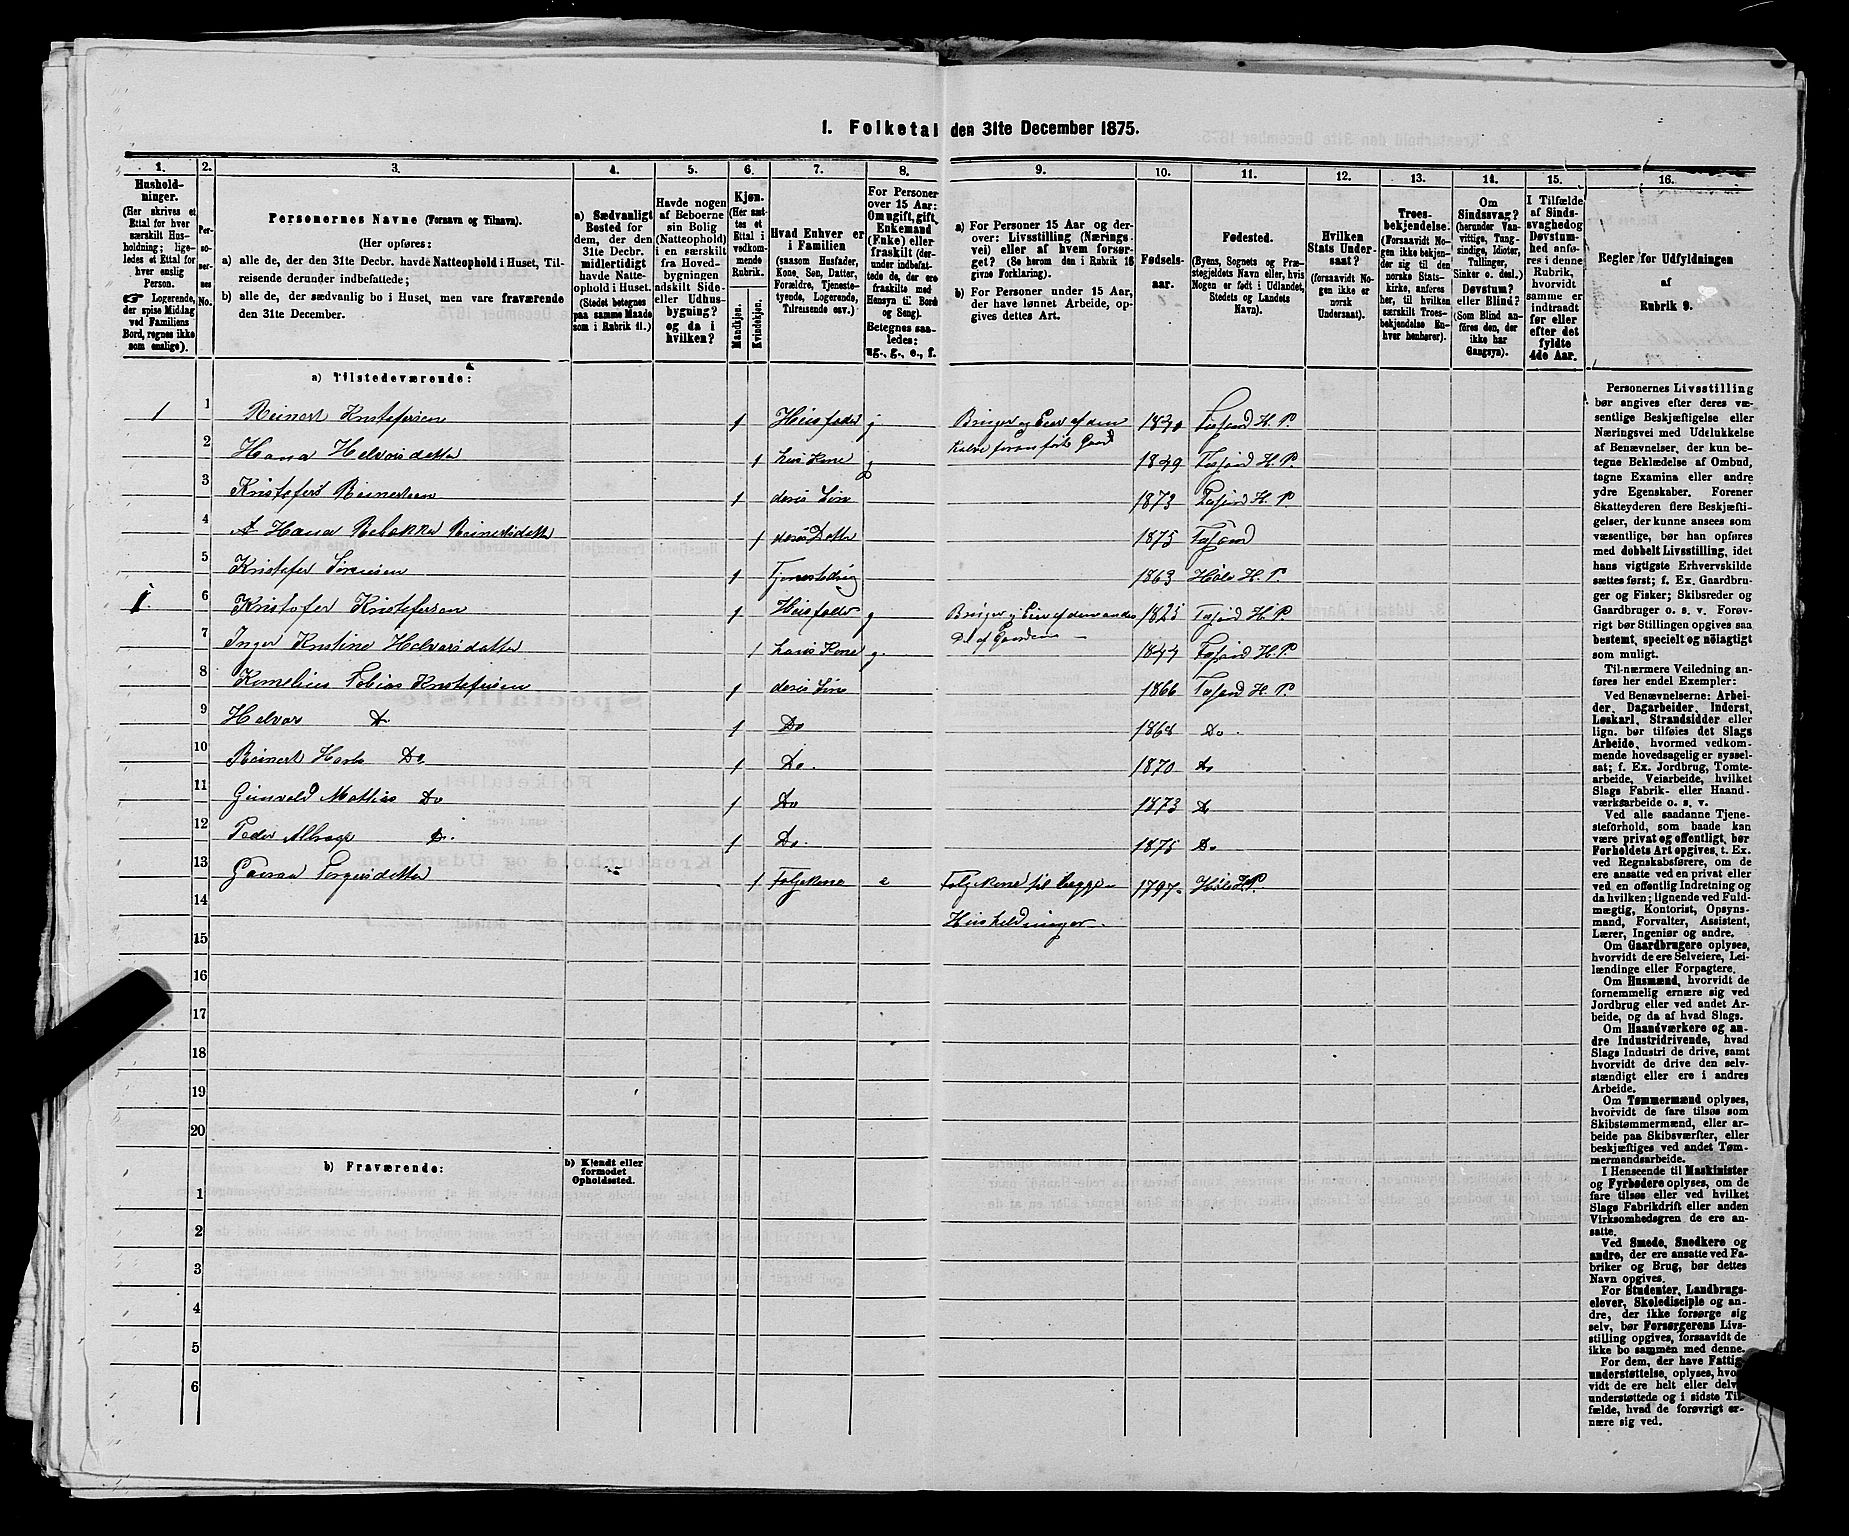 1. Folketal den 31te December 1875.
1. 2. 3. 4. 5. 6. 7. 8. 9. 10. 11. 12. 13. 14. 15. 16.
Husholdninger.
(Her skrives et
Ettal for hver
særskilt Husholdning;
ligeledes et Ettal for
hver enslig
Person.
☞ Logerende,
der spise Middag
ved Familiens
Bord, regnes ikke
som enslige).
Personernes No.
Personernes Navne (Fornavn og Tilnavn).
(Her opføres:
a) alle de, der den 31te Decbr. havde Natteophold i Huset, Tilreisende derunder indbefattede;
b) alle de, der sædvanlig bo i Huset, men vare fraværende
den 31te December.
a) Sædvanligt
Bosted for
dem, der den
31te Decbr.
midlertidigt
havde Natteophold i Huset.
(Stedet betegnes
paa samme Maade
som i Rubrik 11.)
Havde nogen
af Beboerne
sin Bolig
(Natteophold)
i en særskilt
fra Hovedbygningen
adskilt Side- eller Udhusbygning?
og da i
hvilken?
Kjøn.
(Her sættes et
Ettal i
vedkommende
Rubrik.
Mandkjøn.
Kvindekjøn.
Hvad Enhver er
i Familien
(saasom Husfader,
Kone, Søn, Datter,
Forældre, Tjenestetyende, Logerende,
Tilreisende osv.)
For Personer
over 15 Aar:
Om ugift, gift,
Enkemand
(Enke) eller
fraskilt (derunder indbefattede de, der ere
fraskilte med
Hensyn til Bord
og Seng).
Betegnes saaledes:
ug., g., e., f.
a) For Personer 15 Aar og derover: Livsstilling (Næringsvei) eller af hvem forsørget? (Se herom den i Rubrik 16
givne Forklaring).
b) For Personer under 15 Aar,
der have lønnet Arbeide, opgives dettes Art.
Fødselsaar.
Fødested.
(Byens, Sognets og Præstegjeldets Navn eller, hvis
Nogen er født i Udlandet,
Stedets og Landets
Navn).
Hvilken
Stats Undersaat?
(forsaavidt Nogen ikke er
norsk
Undersaat).
Troesbekjendelse.
(Forsaavidt Nogen ikke bekjender sig til den
norske Statskirke, anføres
her, til hvilken
særskilt Troesbekjendelse Enhver henhører).
Om
Sindssvag?
(herunder Vanvittige, Tungsindige, Idioter,
Tullinger,
Sinker o. desl.)
Døvstum?
eller Blind?
(Som Blind anføres den, der
ikke har
Gangsyn).
I Tilfælde
af Sindssvaghed og
Døvstumhed anføres i denne
Rubrik,
hvorvidt
samme er
indtraadt
før eller
efter det
fyldte
4de Aar.
Regler for Udfyldningen
af
Rubrik 9.
a) Tilstedeværende:
1 1 Reinert Kristofersen 1 Husfader g Bruger og Eier af den 1840 Fosjord H. P.
2 Hana Helvarsdatter 1 hans Kone g 1849 H. P.
3 Kristofers Reinertsen 1 deres Søn 1873 H. P.
4 Hana Rebekka Reinertsdatter 1 deres Datter 1875
5 Kristofer 1 1863 Høle H. P.
1. 6 Kristofer Kristofersen 1 Husfader g Bruger og Eier af den anden 1825 H. P.
Del af Gaarden
7 Inger Kristine Helvarsdatter 1 hans Kone g. 1844 H. P.
8 Kornelius Tobias Kristofersen 1 deres Søn 1866 H. P.
9 Helvar Do 1 Do 1868 Do.
10 Reinert Do. 1 Do. 1870 Do
11 Gunvald Mathias Do 1 Do 1873 Do
12 Peder Do. 1 Do. 1875 Do
13 Torgersdatter 1 Føljekone e Føljekone til begge 1797 Høle H. P.
14 Husholdninger.
15
16
17
18
19
20
b) Fraværende: b) Kjendt eller
formodet
Opholdssted.
1
2
3
4
5
6
Personernes Livsstilling
bør angives efter deres væsentlige Beskjæftigelse eller
Næringsvei med Udelukkelse
af Benævnelser, der kun betegne Beklædelse af Ombud,
tagne Examina eller andre
ydre Egenskaber. Forener
Skatteyderen flere Beskjæftigelser, der kunne ansees som
væsentlige, bør han opføres
med dobbelt Livsstilling, idet
hans vigtigste Erhvervskilde
sættes først; f. Ex. Gaardbruger og Fisker; Skibsreder og
Gaardbruger o. s. v. Forøvrigt bør Stillingen opgives saa
bestemt, specielt og nøiagtigt
som muligt.
Til nærmere Veiledning anføres her endel Exempler:
Ved Benævnelserne: Arbeider, Dagarbeider, Inderst,
Løskarl, Strandsidder eller
lign. bør tilføies det Slags
Arbeide, hvormed vedkommende hovedsagelig er sysselsat; f. Ex. Jordbrug, Tomtearbeide, Veiarbeide, hvilket
Slags Fabrik- eller Haandværksarbeide o. s. v.
Ved alle saadanne Tjenesteforhold, som baade kan
være privat og offentligt, bør
Forholdets Art opgives, t. Ex.
ved Regnskabsførere, om de
ere ansatte ved en privat eller
ved en offentlig Indretning og
da hvilken; lignende ved Fuldmægtig, Kontorist, Opsynsmand, Forvalter, Assistent,
Lærer, Ingeniør og andre.
Om Gaardbrugere oplyses,
hvorvidt de ere Selveiere, Leilændinge eller Forpagtere.
Om Husmænd, hvorvidt de
fornemmelig ernære sig ved
Jordbrug eller ved andet Arbeide, og da af hvad Slags.
Om Haandværkere og andre Industridrivende, hvad
Slags Industri de drive, samt
hvorvidt de drive den selvstændigt eller ere i andres
Arbeide.
Om Tømmermænd oplyses,
hvorvidt de fare tilsøs som
Skibstømmermænd, eller arbeide paa Skibsværfter, eller
beskjæftiges ved andet Tømmermandsarbeide.
I Henseende til Maskinister
og Fyrbødere oplyses, om de
fare tilsøs eller ved hvilket
Slags Fabrikdrift eller anden
Virksomhedsgren de ere ansatte.
Ved Smede, Snedkere og
andre, der ere ansatte ved Fabriker og Brug, bør dettes
Navn opgives.
For Studenter, Landbrugselever, Skoledisciple og andre, der ikke forsørge sig
selv, bør Forsørgerens Livsstilling opgives, forsaavidt de
ikke bo sammen med denne.
For dem, der have Fattigunderstøttelse, oplyses, hvorvidt de ere helt eller delvis
understøttede og i sidste Tilfælde, hvad de forøvrigt ernære sig ved.